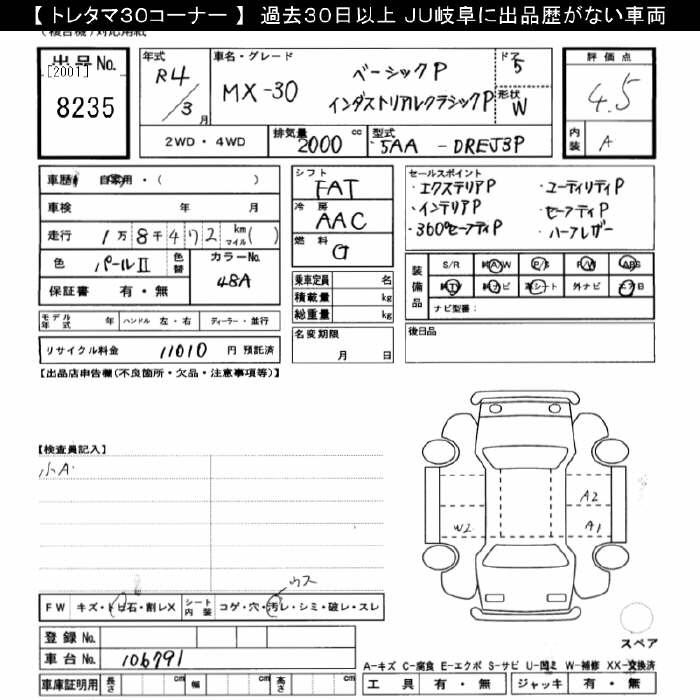 【 トレタマ30コーナー 】 過去30日以上 JU岐阜に出品歴がない車両
出品No.
[2001]
8235
年式
R4/3月
車名・グレード
MX-30 ベーシックP
インダストリアルクラシックP
ドア
5
形状
W
評価点
4.5
内装
A
2WD・4WD
排気量
2000 cc
型式
5AA - DREJ3P
車歴 自家用・( )
車検 年 月
走行 1万8千472 km マイル( )
色
パールⅡ
色替
カラーNo.
48A
保証書 有・無
シフト
FAT
冷房
AAC
燃料
G
乗車定員 名
積載量 kg
総重量 kg
セールスポイント
・エクステリアP ・ユーティリティP
・インテリアP ・セーフティP
・360°セーフティP ・ハーフレザー
装備品
S/R 純AW P/S P/W ABS
純TV 純ナビ 革シート 外ナビ エアB
ナビ型番：
モデル年式 年 ハンドル 左・右 ディーラー・並行
リサイクル料金 11010 円 預託済
名変期限
月 日
後日品
【出品店申告欄(不良箇所・欠品・注意事項等)】
【検査員記入】
小A.
A2
W2
A1
ウス
FW キズ・トビ石・割レX シート内装 コゲ・穴・汚レ・シミ・破レ・スレ
登録No.
車台No. 106791
スペア
A-キズ C-腐食 E-エクボ S-サビ U-凹ミ W-補修 XX-交換済
車庫証明用 長さ cm 幅 cm 高さ cm
工具 有・無 ジャッキ 有・無